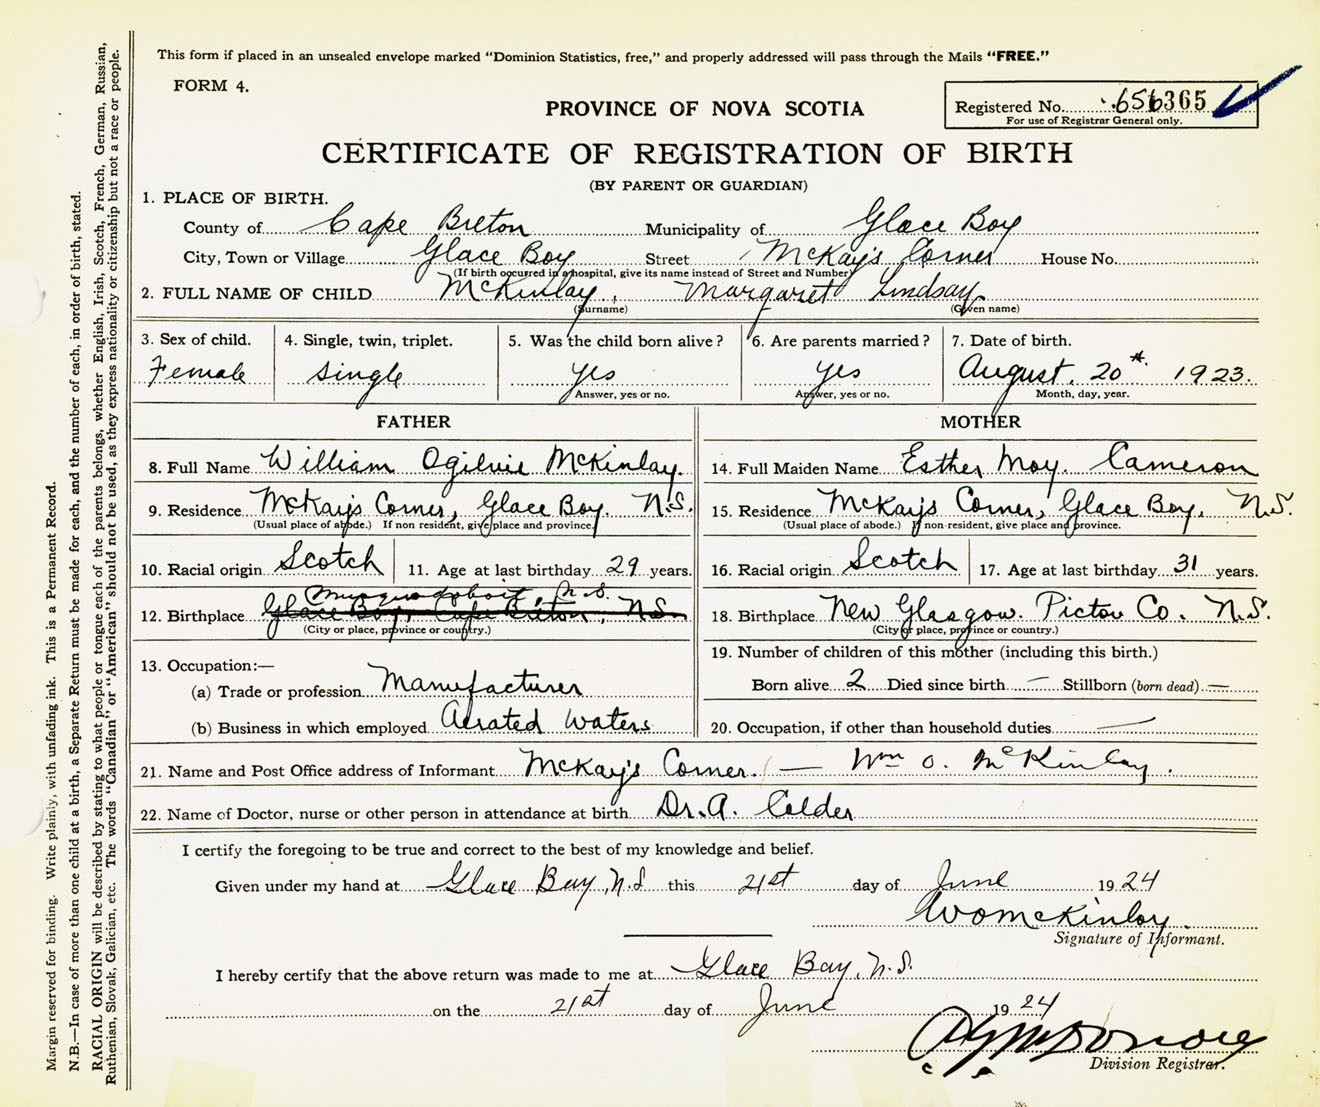 This form if placed in an unsealed envelope marked "Dominion Statistics, free," and properly addressed will pass through the Mails "FREE."
FORM 4.
PROVINCE OF NOVA SCOTIA
Registered No. 656365
For use of Registrar General only.
CERTIFICATE OF REGISTRATION OF BIRTH
(BY PARENT OR GUARDIAN)
1. PLACE OF BIRTH.
County of Cape Breton Municipality of Glace Bay
City, Town or Village Glace Bay Street McKay's Corner House No.
(If birth occurred in a hospital, give its name instead of Street and Number)
2. FULL NAME OF CHILD McKinlay, Margaret Lindsay
(Surname) (Given name)
3. Sex of child. 4. Single, twin, triplet. 5. Was the child born alive? 6. Are parents married? 7. Date of birth.
Female single yes yes August. 20th. 1923.
Answer, yes or no. Answer, yes or no. Month, day, year.
FATHER
8. Full Name William Ogilvie McKinlay.
9. Residence McKay's Corner, Glace Bay. N.S.
(Usual place of abode.) If non resident, give place and province.
10. Racial origin Scotch 11. Age at last birthday 29 years.
Musquodoboit, N.S.
12. Birthplace Glace Bay, Cape Breton, N.S.
(City or place, province or country.)
13. Occupation:—
(a) Trade or profession Manufacturer
(b) Business in which employed Aerated Waters
MOTHER
14. Full Maiden Name Esther May. Cameron
15. Residence McKay's Corner, Glace Bay. N.S.
(Usual place of abode.) If non-resident, give place and province.
16. Racial origin Scotch 17. Age at last birthday 31 years.
18. Birthplace New Glasgow. Pictou Co. N.S.
(City or place, province or country.)
19. Number of children of this mother (including this birth.)
Born alive 2 Died since birth — Stillborn (born dead) —
20. Occupation, if other than household duties —
21. Name and Post Office address of Informant McKay's Corner. — Wm O. McKinlay.
22. Name of Doctor, nurse or other person in attendance at birth Dr. A. Calder
I certify the foregoing to be true and correct to the best of my knowledge and belief.
Given under my hand at Glace Bay, N.S. this 21st day of June 1924
WOMcKinlay.
Signature of Informant.
I hereby certify that the above return was made to me at Glace Bay, N.S.
on the 21st day of June 1924
Division Registrar.
Margin reserved for binding. Write plainly, with unfading ink. This is a Permanent Record.
N.B.—In case of more than one child at a birth, a Separate Return must be made for each, and the number of each, in order of birth, stated.
RACIAL ORIGIN will be described by stating to what people or tongue each of the parents belongs, whether English, Irish, Scotch, French, German, Russian,
Ruthenian, Slovak, Galician, etc. The words "Canadian" or "American" should not be used, as they express nationality or citizenship but not a race or people.